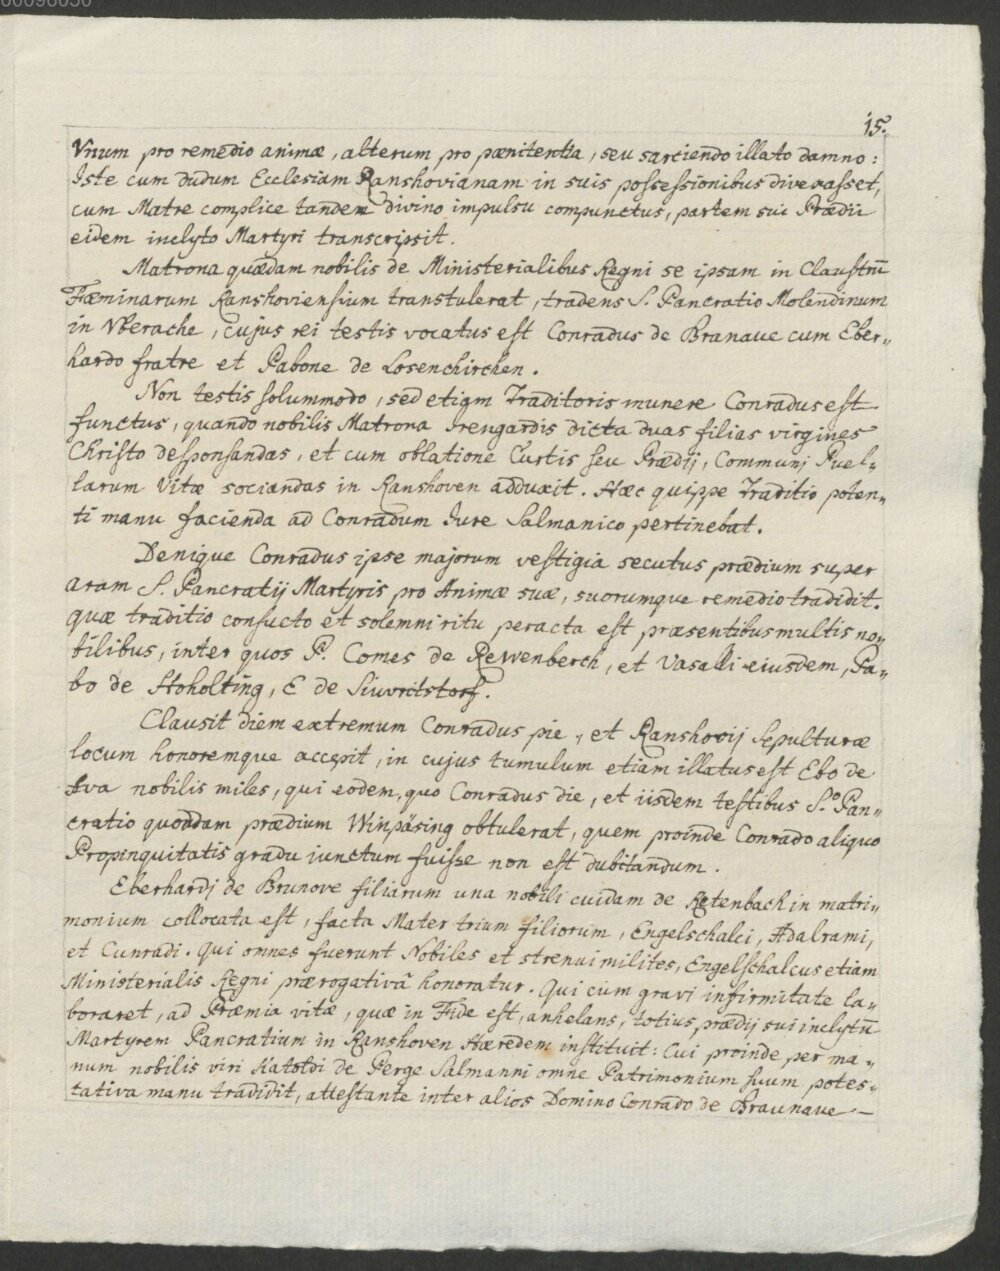 00096050
15.
Vnum pro remedio animæ, alterum pro pænitentia, seu sarciendo illato damno:
Iste cum dudum Ecclesiam Ranshovianam in suis possessionibus divexasset,
cum Matre complice tandem divino impulsu compunctus, partem sui Prædii
eidem inclyto Martyri transcripsit.
Matrona quædam nobilis de Ministerialibus Regni se ipsam in Claustrū
Fæminarum Ranshoviensium transtulerat, tradens S. Pancratio Molendinum
in Vberache, cujus rei testis vocatus est Conradus de Branaue cum Eber„
hardo fratre et Pabone de Losenchirchen.
Non testis solummodo, sed etiam Traditoris munere Conradus est
functus, quando nobilis Matrona Irengardis dicta duas filias virgines
Christo desponsandas, et cum oblatione Curtis seu Prædij, Communj Puel„
larum Vitæ sociandas in Ranshoven adduxit. Hæc quippe Traditio poten„
ti manu facienda ad Conradum Iure Salmanico pertinebat.
Denique Conradus ipse majorum vestigia secutus prædium super
aram S. Pancratij Martyris pro Animæ suæ, suorumque remedio tradidit.
quæ traditio consueto et solemni ritu peracta est præsentibus multis no„
bilibus, inter quos P. Comes de Rewenberch, et Vasalli eiusdem, Pa„
bo de Hoholting, E de Siuvritstorf.
Clausit diem extremum Conradus pie, et Ranshovij Sepulturæ
locum honoremque accepit, in cujus tumulum etiam illatus est Ebo de
Iva nobilis miles, qui eodem, quo Conradus die, et iisdem testibus S.º Pan„
cratio quoddam prædium Winpäsing obtulerat, quem proinde Conrado aliquo
Propinquitatis gradu iunctum fuisse non est dubitandum.
Eberhardj de Brunove filiarum una nobili cuidam de Rotenbach in matri„
monium collocata est, facta Mater trium filiorum, Engelschalci, Adalrami,
et Cunradi. Qui omnes fuerunt Nobiles et strenui milites, Engelschalcus etiam
Ministerialis Regni prærogativâ honoratur. Qui cum gravi infirmitate la„
boraret, ad Præmia vitæ, quæ in Fide est, anhelans, totius prædij sui inclytū
Martyrem Pancratium in Ranshoven Hæredem instituit: Cui proinde per ma„
num nobilis viri Katoldi de Perge Salmanni omne Patrimonium suum potes„
tativa manu tradidit, attestante inter alios Domino Conrado de Braunaue —